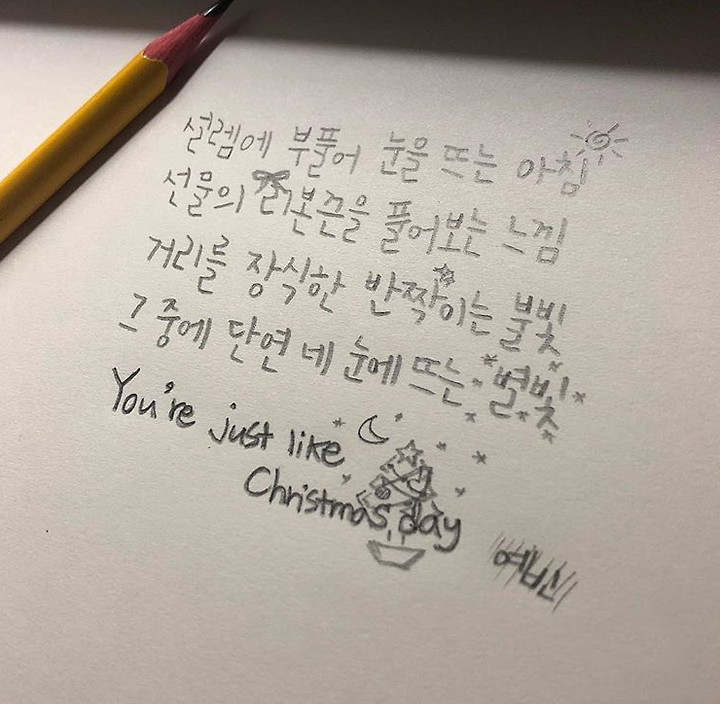 설렘에 부풀어 눈을 뜨는 아침
선물의 리본끈을 풀어보는 느낌
거리를 장식한 반짝이는 불빛
그 중에 단연 네 눈에 뜨는 별빛
You're just like
Christmas day
예빈